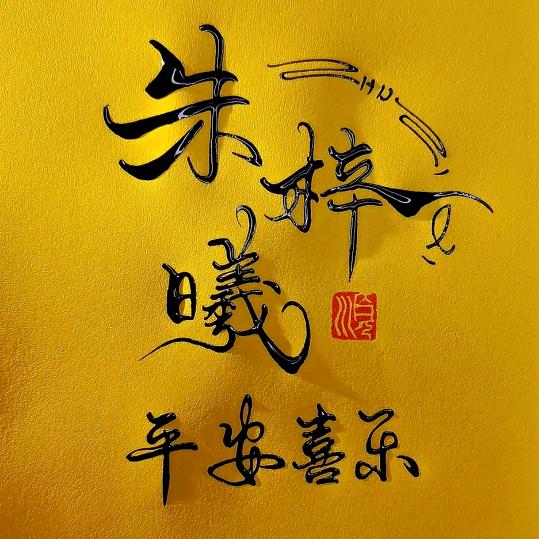 朱
梓
曦
平安喜乐